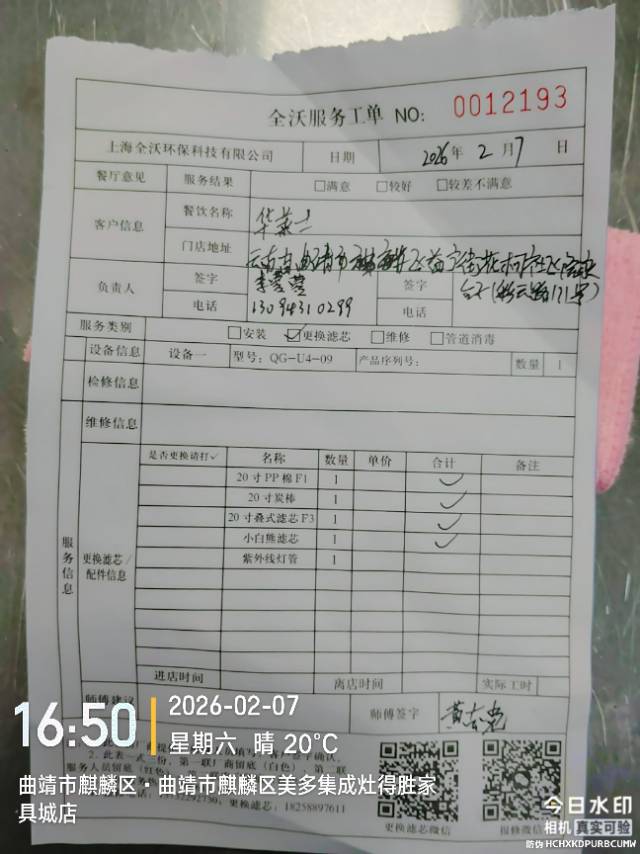 全沃服务工单 NO: 0012193
上海全沃环保科技有限公司 日期 2026年 2 月 7 日
餐厅意见 服务结果 □满意 □较好 □较差不满意
客户信息 餐饮名称 华莱士
门店地址 云南省曲靖市麒麟区益宁街花柯社区
(彩云路171号)
负责人 签字 签字
电话 13094310299 电话
服务类别 □安装 ☑更换滤芯 □维修 □管道消毒
设备信息 设备一 型号: QG-U4-09 产品序列号: 数量 1
检修信息
维修信息
服务信息
更换滤芯/配件信息
是否更换请打✓ 名称 数量 单价 合计 备注
20寸PP棉F1 1 ✓
20寸炭棒 1 ✓
20寸叠式滤芯F3 1 ✓
小白熊滤芯 1 ✓
紫外线灯管 1
进店时间 离店时间 实际工时
师傅建议 师傅签字
2. 此表一式三份,第一联厂商留底(白色),第二联
更换滤芯: 18258897611
更换滤芯微信 报修微信
16:50
2026-02-07
星期六 晴 20℃
曲靖市麒麟区·曲靖市麒麟区美多集成灶得胜家
具城店
今日水印
相机 真实可验
防伪 HCHXKDPURBCUMW